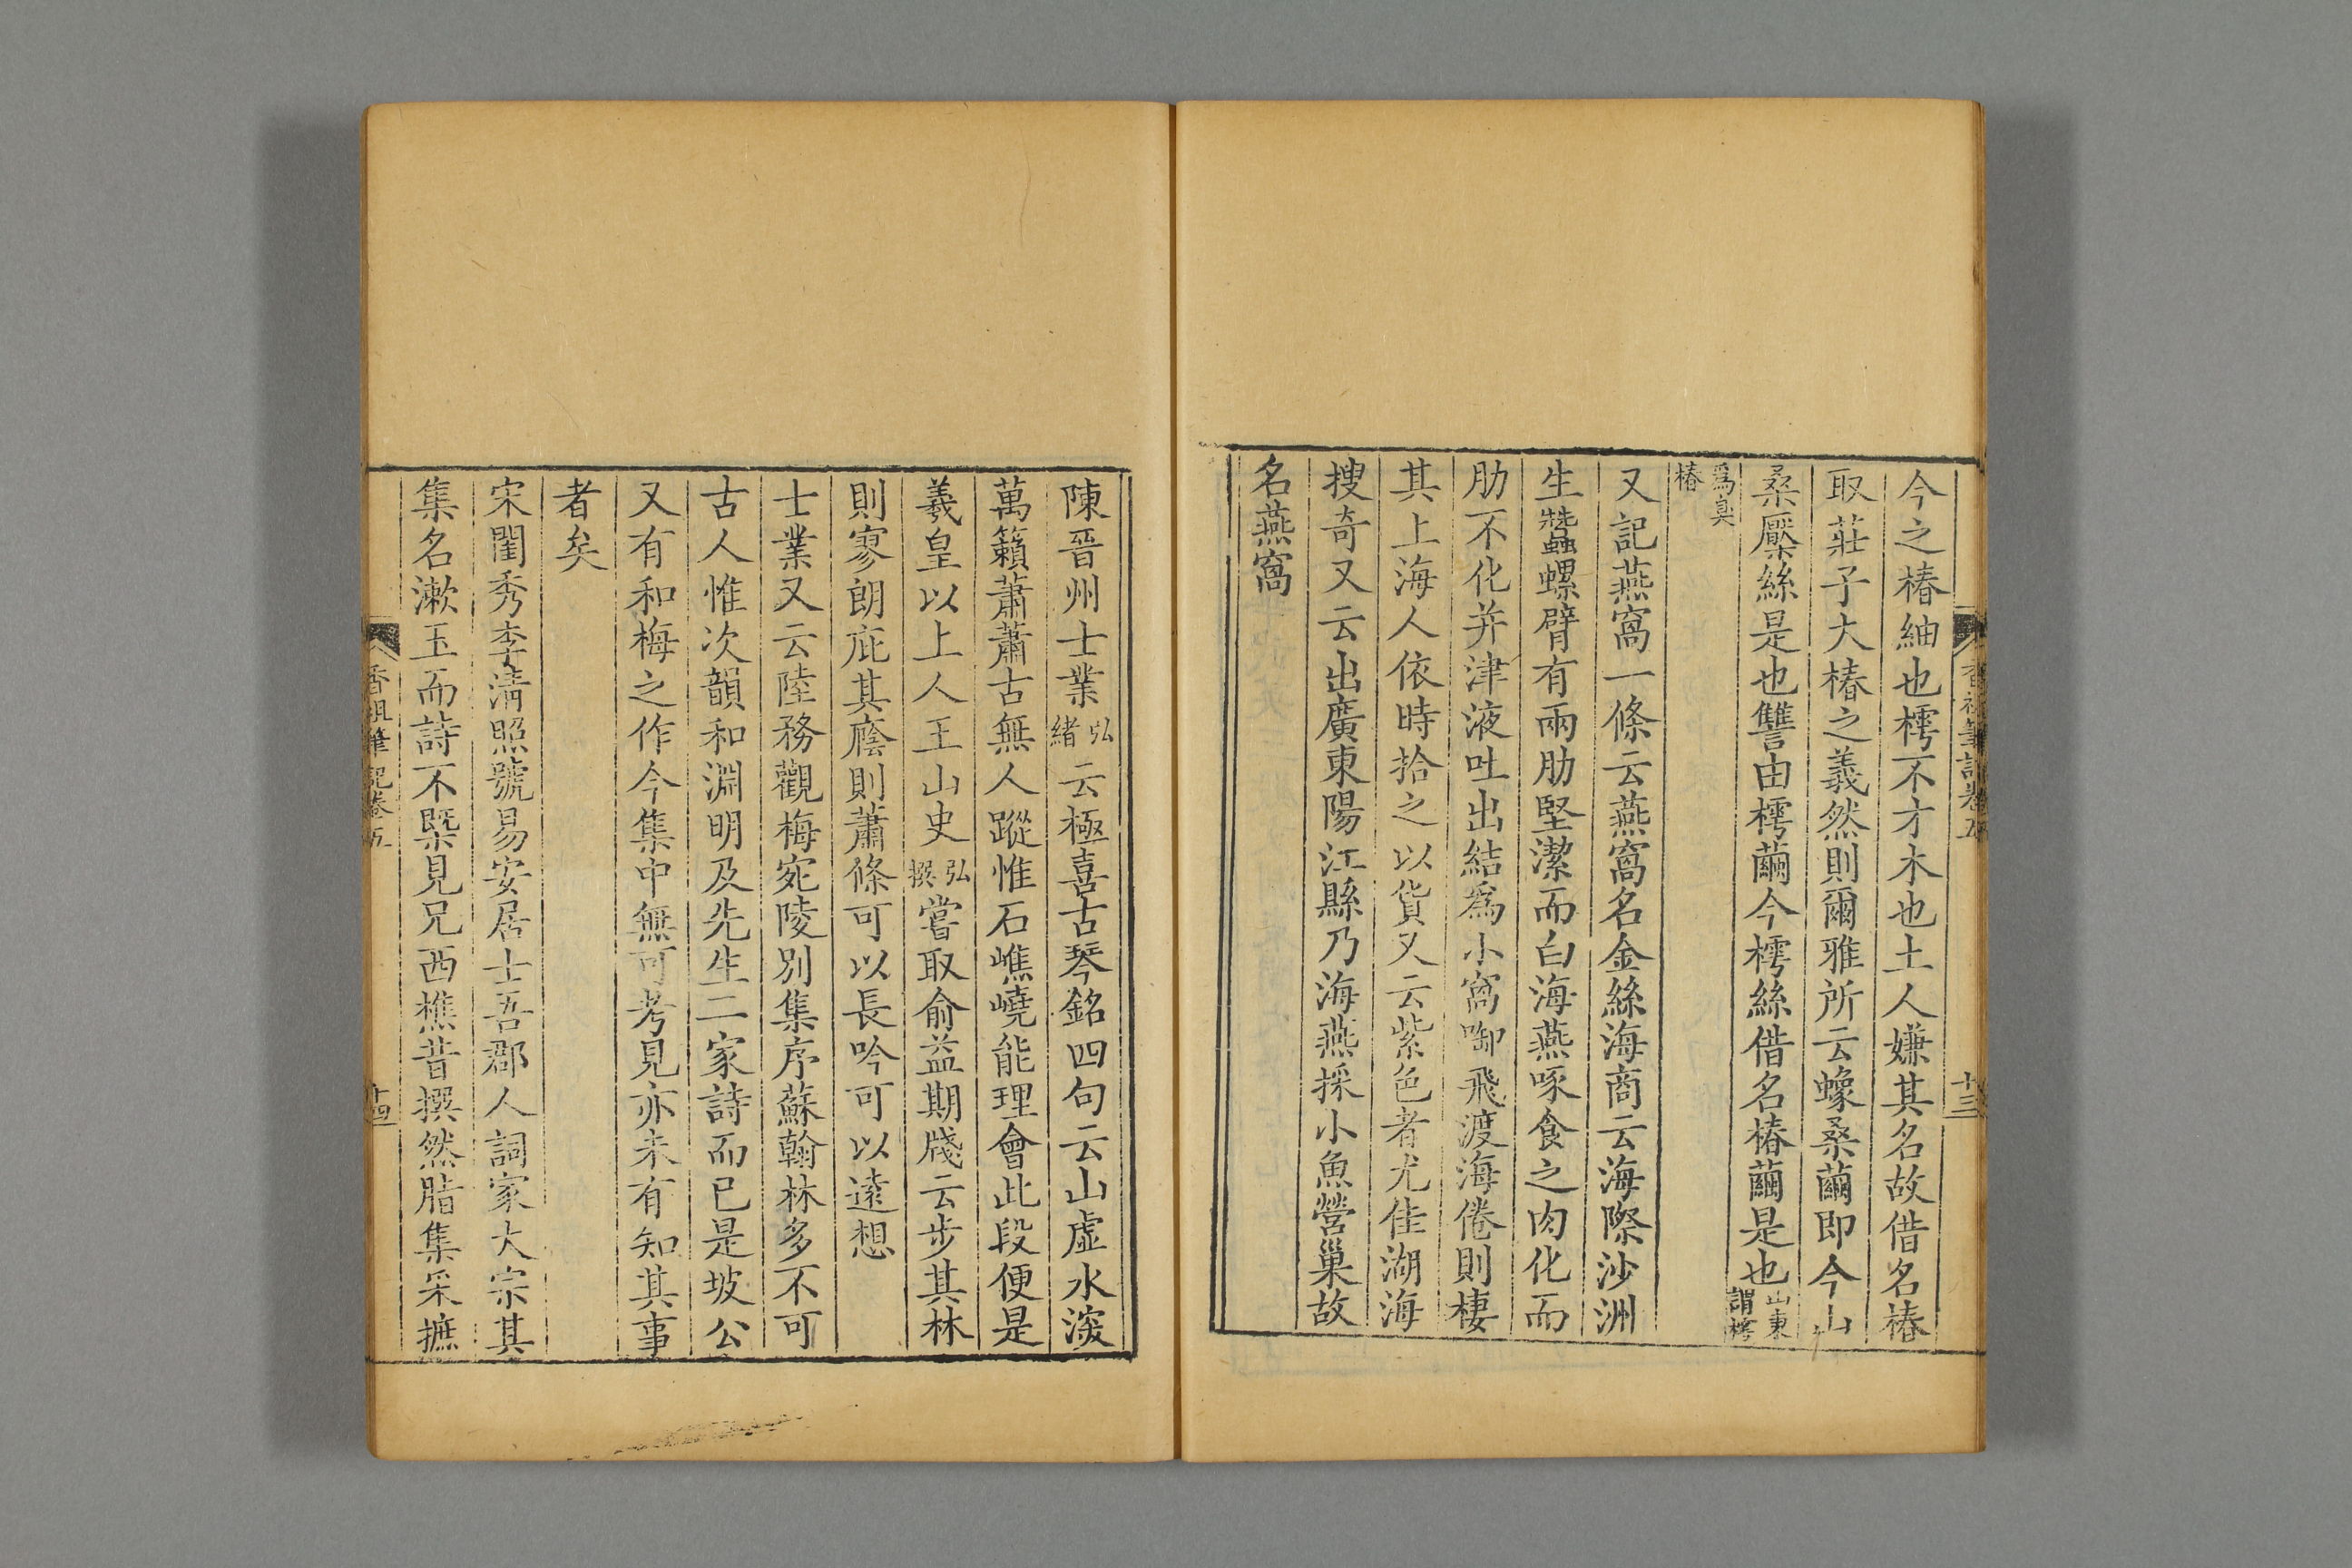 香祖筆記卷五
十三
今之椿紬也樗不才木也土人嫌其名故借名椿
取莊子大椿之義然則爾雅所云蟓桑繭即今山
桑檿絲是也讐由樗繭今樗絲借名椿繭是也山東謂樗
爲臭椿
又記燕窩一條云燕窩名金絲海商云海際沙洲
生蠶螺臂有兩肋堅潔而白海燕啄食之肉化而
肋不化并津液吐出結爲小窩啣飛渡海倦則棲
其上海人依時拾之以貨又云紫色者尤佳湖海
搜奇又云出廣東陽江縣乃海燕採小魚營巢故
名燕窩
陳晉州士業弘緒云極喜古琴銘四句云山虛水深
萬籟蕭蕭古無人蹤惟石嶕嶢能理會此段便是
羲皇以上人王山史弘撰嘗取俞益期牋云步其林
則寥朗庇其廕則蕭條可以長吟可以遠想
士業又云陸務觀梅宛陵別集序蘇翰林多不可
古人惟次韻和淵明及先生二家詩而已是坡公
又有和梅之作今集中無可考見亦未有知其事
者矣
宋閨秀李淸照號易安居士吾郡人詞家大宗其
集名漱玉而詩不槩見兄西樵昔撰然脂集采摭
香祖筆記卷五
十四